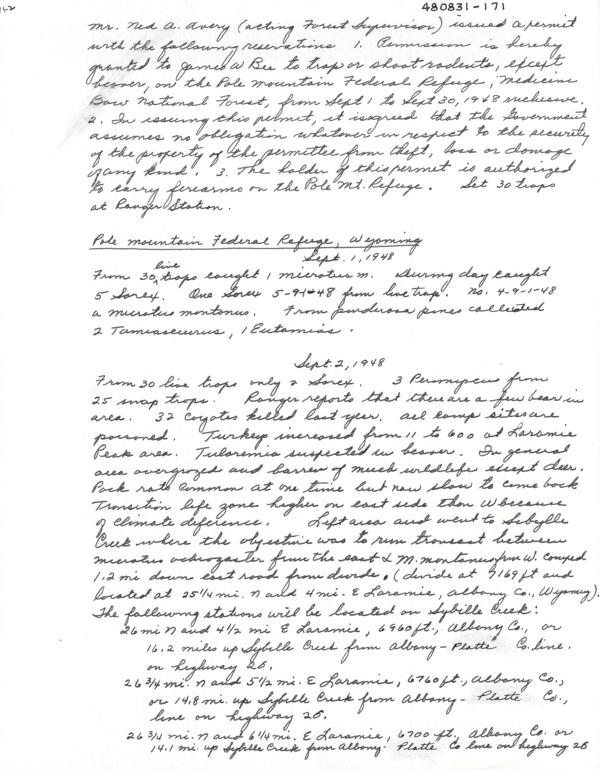 42
480831-171
Mr. Ned A. Avery (acting Forest Supervisor) issued a permit
with the following reservations 1. Permission is hereby
granted to James W Bee to trap or shoot rodents, except
beaver, on the Pole Mountain Federal Refuge, Medicine
Bow National Forest, from Sept 1 to Sept 30, 1948 inclusive.
2. In issuing this permit, it is agreed that the Government
assumes no obligation whatever in respect to the security
of the property of the permittee from theft, loss or damage
of any kind. 3. The holder of this permit is authorized
to carry firearms on the Pole Mt. Refuge. Set 30 traps
at Ranger Station.
Pole Mountain Federal Refuge, Wyoming
Sept. 1, 1948
From 30 live traps caught 1 microtus m. During day caught
5 Sorex. One Sorex 5-9-1-48 from live trap. No. 4-9-1-48
a microtus montanus. From ponderosa pines collected
2 Tamiasciurus, 1 Eutamias.
Sept. 2, 1948
From 30 live traps only 2 Sorex. 3 Peromyscus from
25 snap traps. Ranger reports that there are a few bear in
area. 32 Coyotes killed last year. All camp sites are
poisoned. Turkeys increased from 11 to 600 at Laramie
Peak area. Tularemia suspected in beaver. In general
area overgrazed and barren of much wildlife except deer.
Pack rats common at one time but now slow to come back
Transition life zone higher on east side than W because
of climate diference. Left area and went to Sybylle
Creek where the objective was to run transect between
microtus ochrogaster from the east & M. montanus from W. Camped
1.2 mi down east road from divide. (divide at 7169 ft and
located at 25 1/4 mi. N and 4 mi. E Laramie, Albany Co., Wyoming).
The following stations will be located on Sybille Creek:
26 mi N and 4 1/2 mi E Laramie, 6960 ft., Albany Co., or
16.2 miles up Sybille Creek from Albany - Platte Co. line.
on highway 26.
26 3/4 mi. N and 5 1/2 mi. E Laramie, 6760 ft., Albany Co.,
or 14.8 mi. up Sybille Creek from Albany - Platte Co.,
line on highway 26.
26 3/4 mi. N and 6 1/4 mi. E Laramie, 6700 ft., Albany Co. or
14.1 mi. up Sybille Creek from Albany - Platte Co line on highway 26